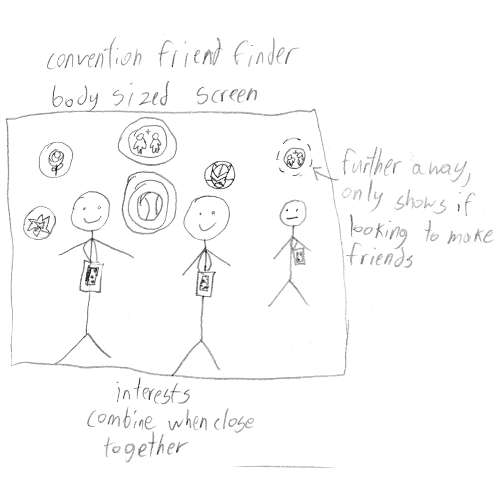 convention friend finder
body sized screen
further away,
only shows if
looking to make
friends
interests
combine when close
together